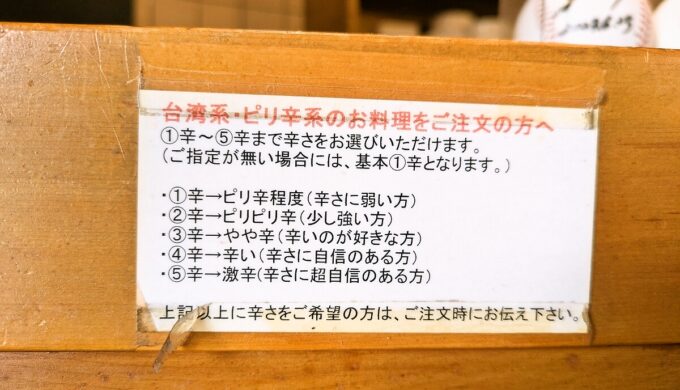 台湾系・ピリ辛系のお料理をご注文の方へ
①辛～⑤辛まで辛さをお選びいただけます。
(ご指定が無い場合には、基本①辛となります。)
・①辛→ピリ辛程度(辛さに弱い方)
・②辛→ピリピリ辛(少し強い方)
・③辛→やや辛(辛いのが好きな方)
・④辛→辛い(辛さに自信のある方)
・⑤辛→激辛(辛さに超自信のある方)
上記以上に辛さをご希望の方は、ご注文時にお伝え下さい。